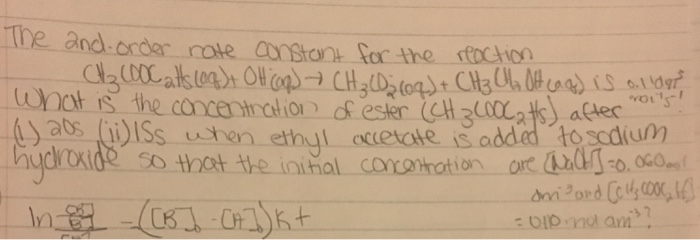 The 2nd-order rate constant for the reaction
CH3COOC2H5(aq) + OH(aq) → CH3CO2(aq) + CH3CH2OH(aq) is 0.11dm3
mol-1s-1.
What is the concentration of ester (CH3COOC2H5) after
(i) 20s (ii) 15s when ethyl accetate is added to sodium
hydroxide so that the initial concentration are [NaOH]=0.060mol
dm-3 and [CH3COOC2H5]
= 0110 mol dm-3?
ln - ([B]0 - [A]0)kt